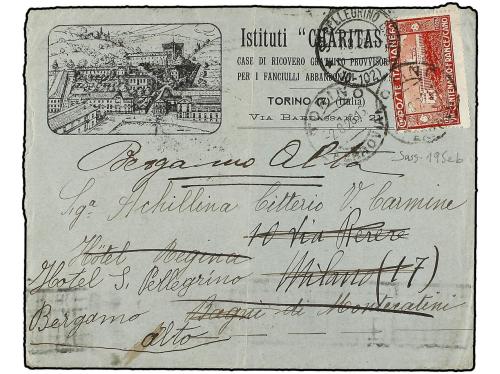 Istituti "CHARITAS"
CASE DI RICOVERO GRATUITO PROVVISORIO
PER I FANCIULLI ABBANDONATI
TORINO (2) (Italia)
VIA BARBASSANO, 2
PELLEGRINO
TORINO
POSTE ITALIANE
CENTENARIO FRANCESCANO
Sass. 195cb
Bergamo Alta
Sig.a Achillina Citterio V. Carmine
Hôtel Regina 10 Via Rerere
Hotel S. Pellegrino Milano (17)
Bergamo Bagni di Montecatini
alto